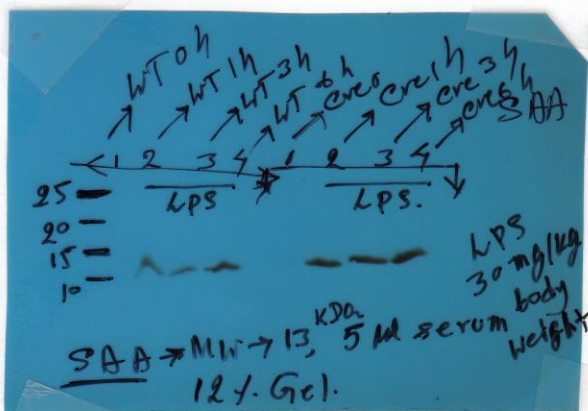 WT 0h WT 1h WT 3h WT 6h Cre0 Cre1h Cre3h Cre6h
SAA
1 2 3 4 1 2 3 4
LPS LPS.
25
20
15
10
LPS
30 mg/kg
body
weight
SAA → MW → 13 KDa, 5 µl serum
12 %. Gel.